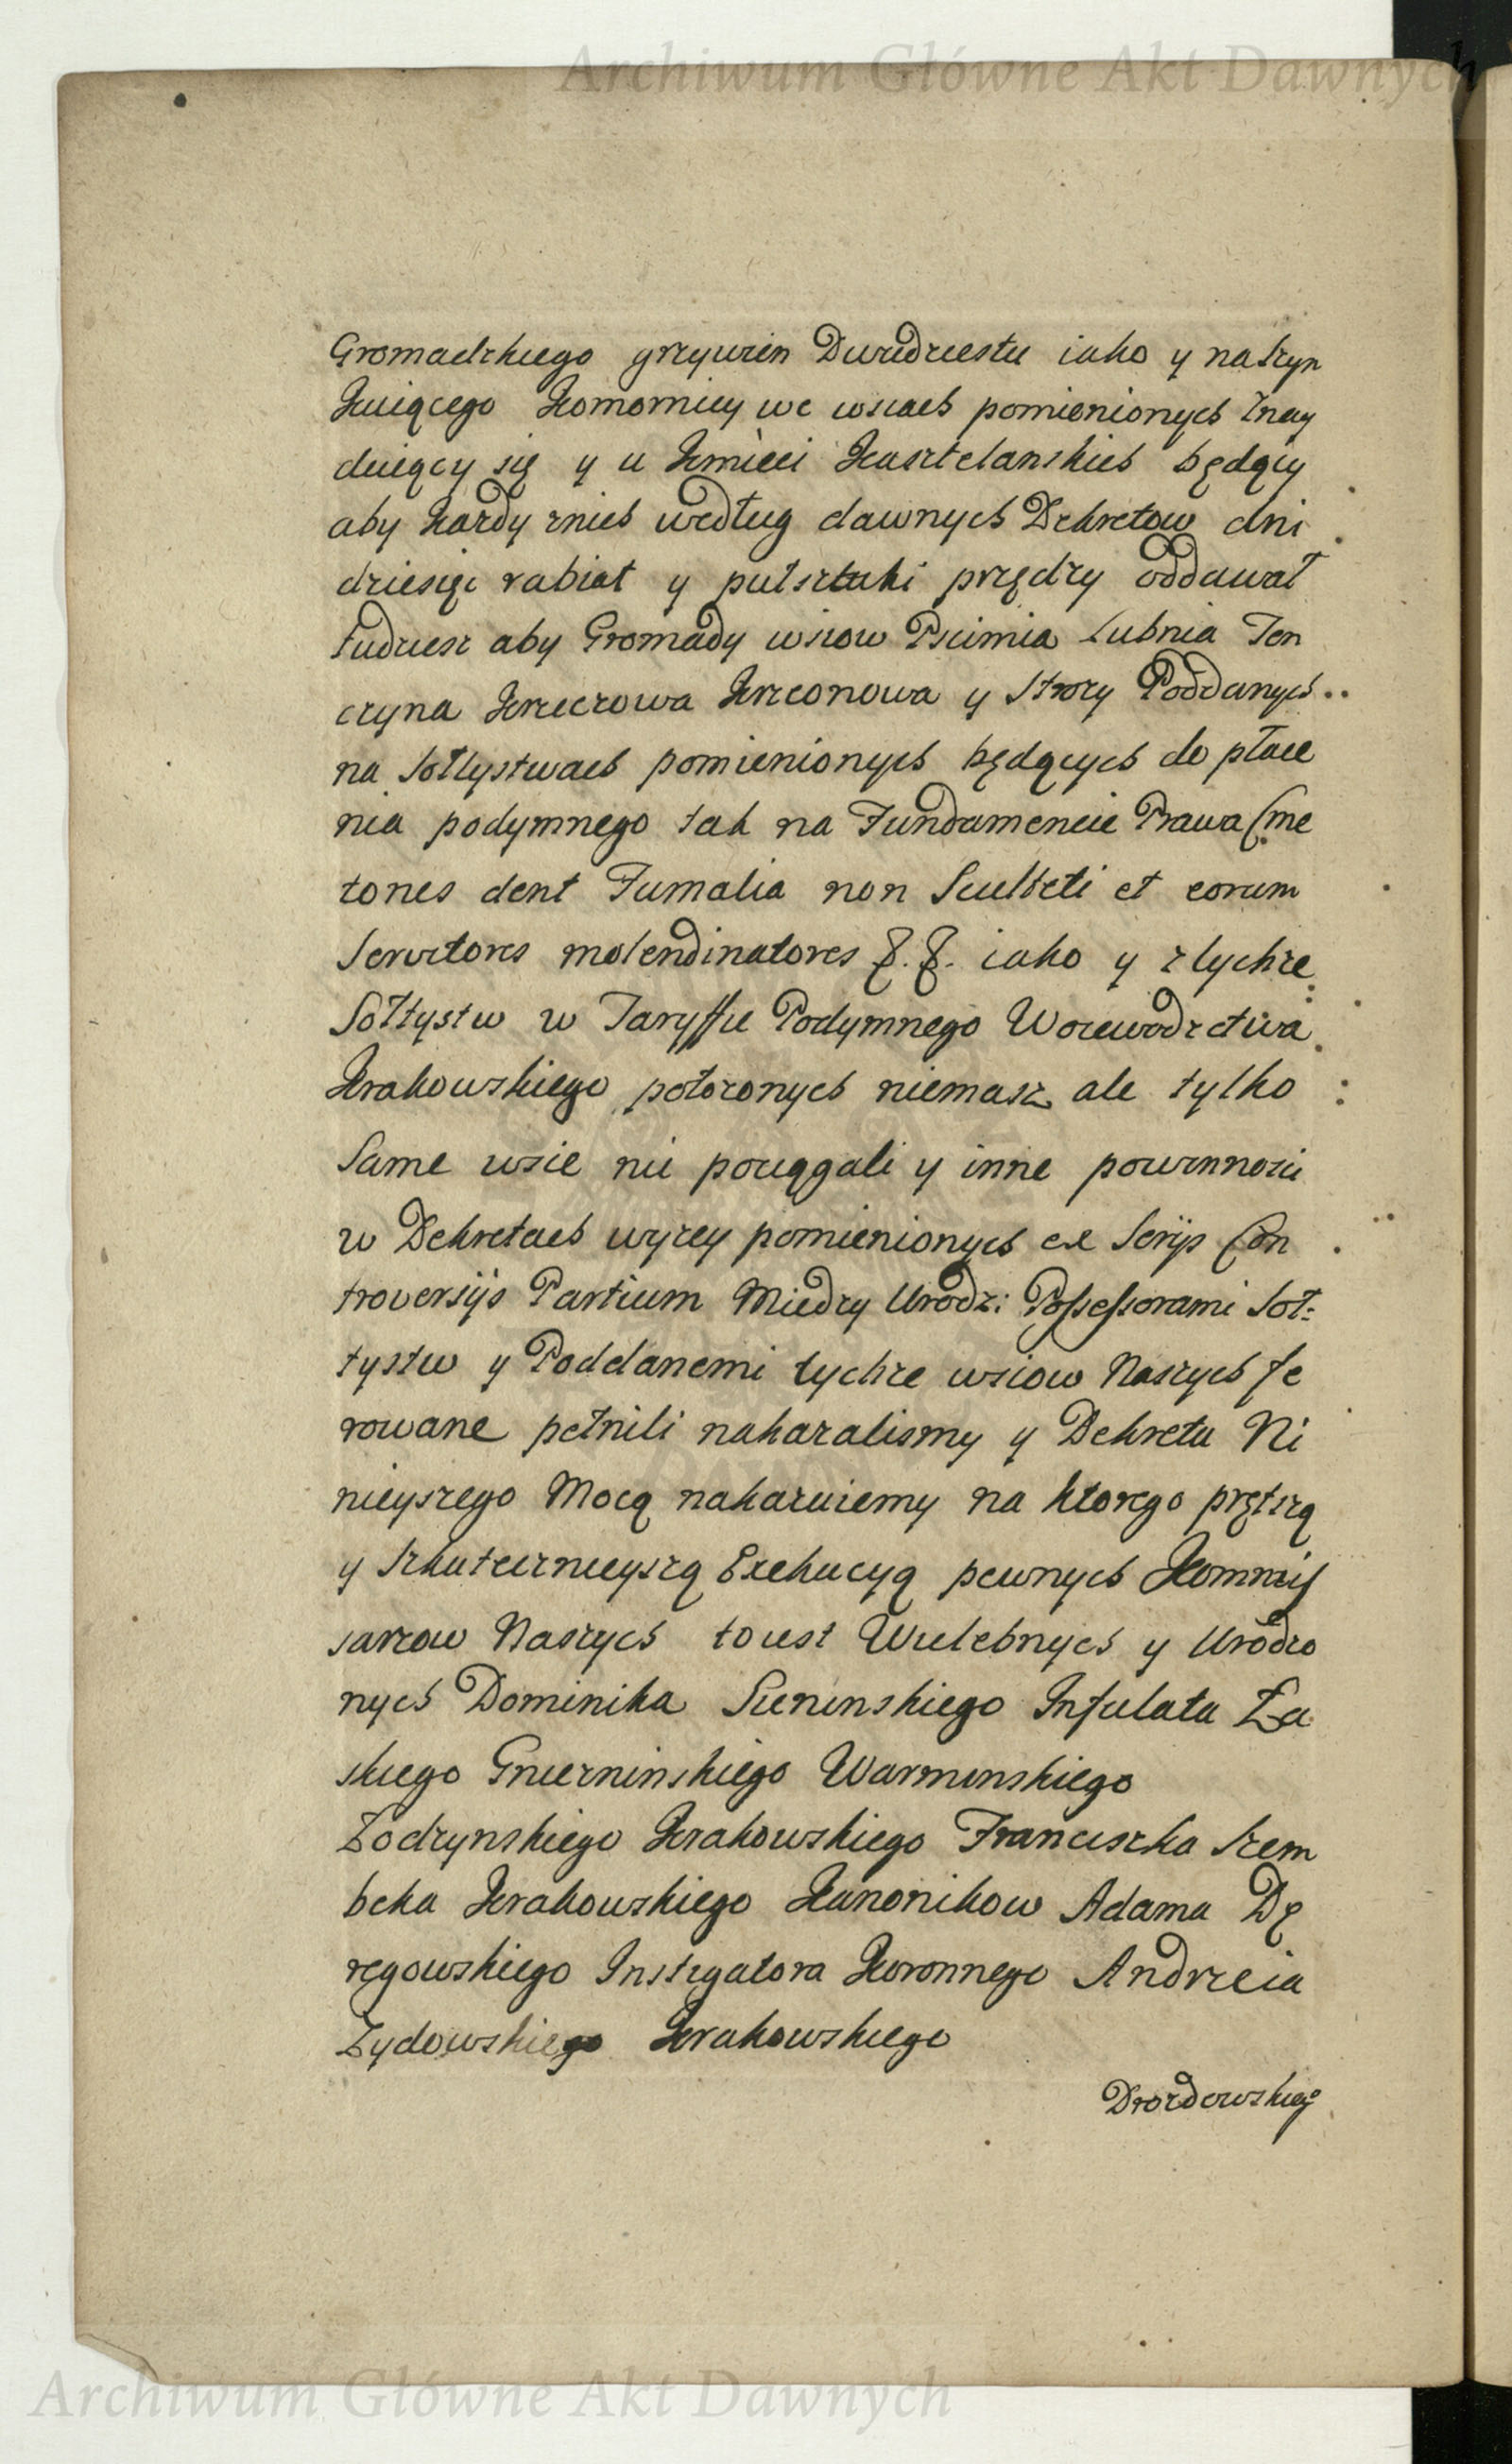 Archiwum Główne Akt Dawnych
Gromadzkiego grzywien Dwudziestu iako y naszyn
kuiącego Komornicy we wsiach pomienionych Znay
duiący się y u Kmieci Kasztelanskich będący
aby kazdy znich według dawnych Dekretow dni
dziesięc rabiał y pułsztuki przędzy oddawał
tudziesz aby Gromady wsiow Pscimia Lubnia Ten
czyna Krzeczowa Krzconowa y Strozy Poddanych
na Sołtystwach pomienionych będących do płace
nia podymnego tak na Fundamencie Prawa Cme
tones dent Fumalia non Sculteti et eorum
Servitores molendinatores &. &. iako y z tychze
Sołtystw w Taryffie Podymnego Woiewodztwa
Krakowskiego połozonych niemasz ale tylko
Same wsie nie pociągali y inne powinnosci
w Dekretach wyzey pomienionych ex Serijs Con
troversijs Partium Miedzy Urodz: Possessorami Soł=
tystw y Poddanemi tychze wsiow Naszych fe
rowane pełnili nakazalismy y Dekretu Ni
nieyszego Mocą nakazuiemy na ktorego prętszą
y Skutecznieyszą Exekucyą pewnych Kommis
sarzow Naszych to iest Wielebnych y Urodzo
nych Dominika Sieninskiego Infulata Ła
skiego Gniezninskiego Warminskiego
Łodzynskiego Krakowskiego Franciszka Szem
beka Krakowskiego Kanonikow Adama Dę
regowskiego Instygatora Koronnego Andrzeia
Zydowskiego Krakowskiego
Drozdowskieg°
Archiwum Główne Akt Dawnych